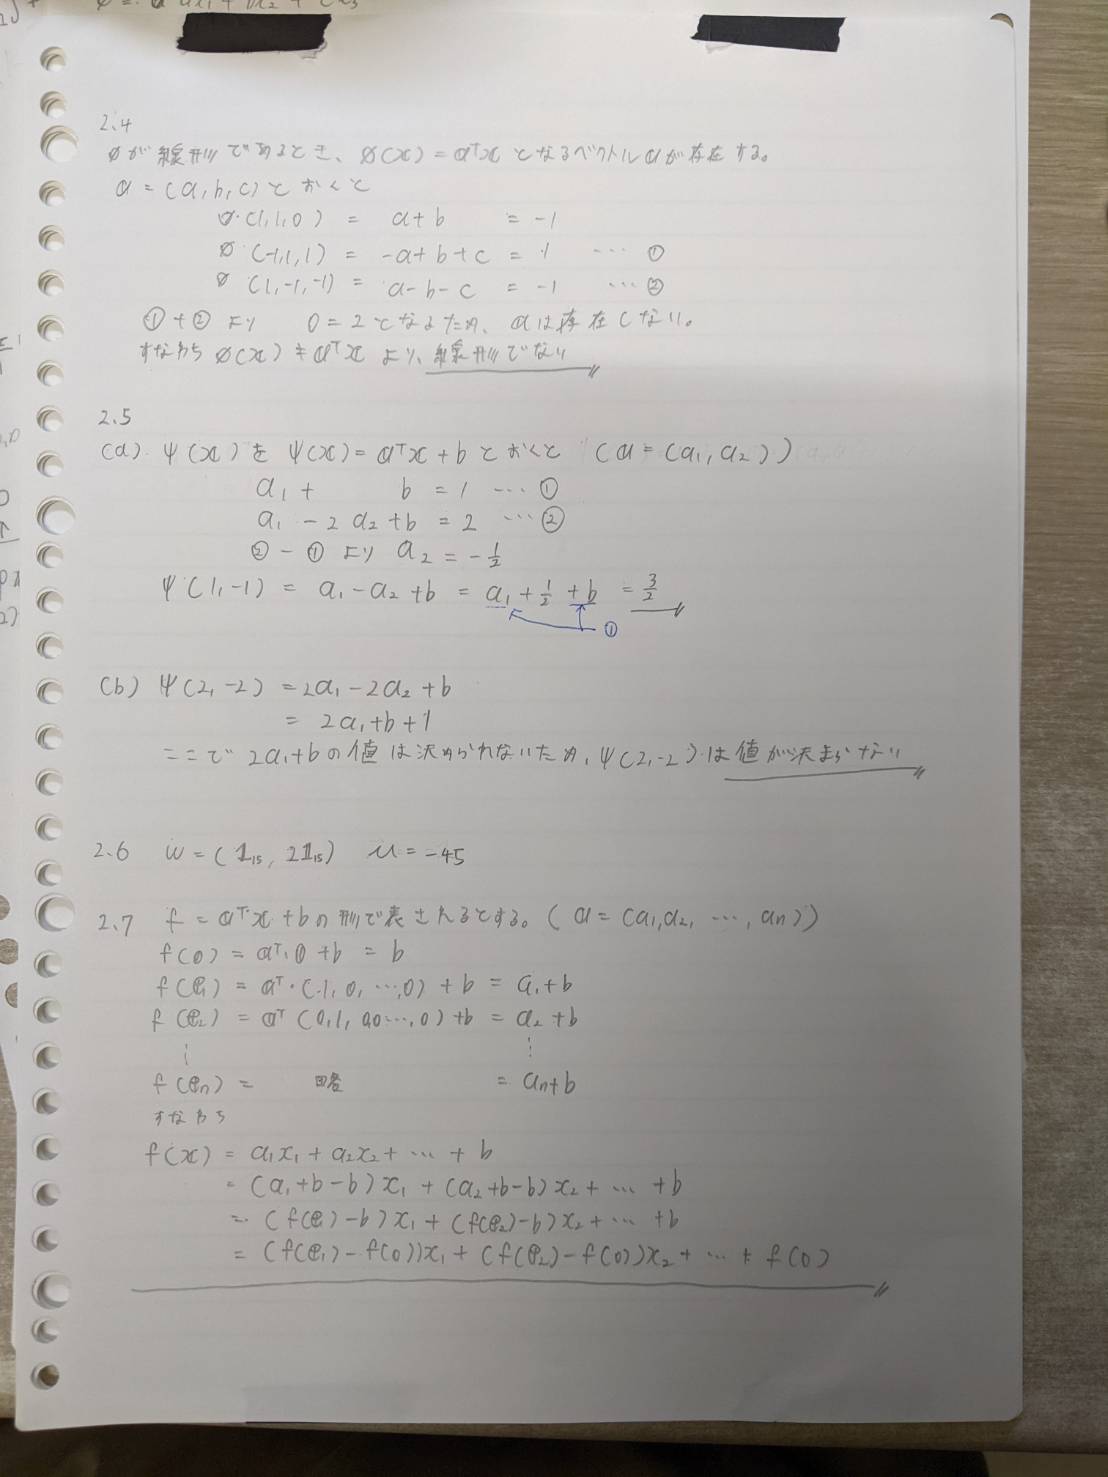 2.4
φが線形であるとき、φ(x) = aᵀx となるベクトルaが存在する。
a = (a, b, c) とおくと
φ(1, 1, 0) = a+b = -1
φ(-1, 1, 1) = -a+b+c = 1 … ①
φ(1, -1, -1) = a-b-c = -1 … ②
①+②より 0=2となるため、aは存在しない。
すなわちφ(x) ≠ aᵀx より、線形でない
2.5
(a) ψ(x)を ψ(x) = aᵀx + b とおくと (a = (a₁, a₂))
a₁ + b = 1 … ①
a₁ - 2a₂ + b = 2 … ②
②-①より a₂ = -1/2
ψ(1, -1) = a₁ - a₂ + b = a₁ + 1/2 + b = 3/2
①
(b) ψ(2, -2) = 2a₁ - 2a₂ + b
= 2a₁ + b + 1
ここで 2a₁+bの値は決められないため, ψ(2, -2)は値が決まらない
2.6 w = (𝟙₁₅, 2𝟙₁₅) u = -45
2.7 f = aᵀx + bの形で表されるとする。(a = (a₁, a₂, …, aₙ))
f(0) = aᵀ·0 + b = b
f(e₁) = aᵀ·(1, 0, …, 0) + b = a₁+b
f(e₂) = aᵀ(0, 1, 0, 0 …, 0) + b = a₂+b
⋮ ⋮
f(eₙ) = 略 = aₙ+b
すなわち
f(x) = a₁x₁ + a₂x₂ + … + b
= (a₁+b-b)x₁ + (a₂+b-b)x₂ + … + b
= (f(e₁)-b)x₁ + (f(e₂)-b)x₂ + … + b
= (f(e₁)-f(0))x₁ + (f(e₂)-f(0))x₂ + … + f(0)